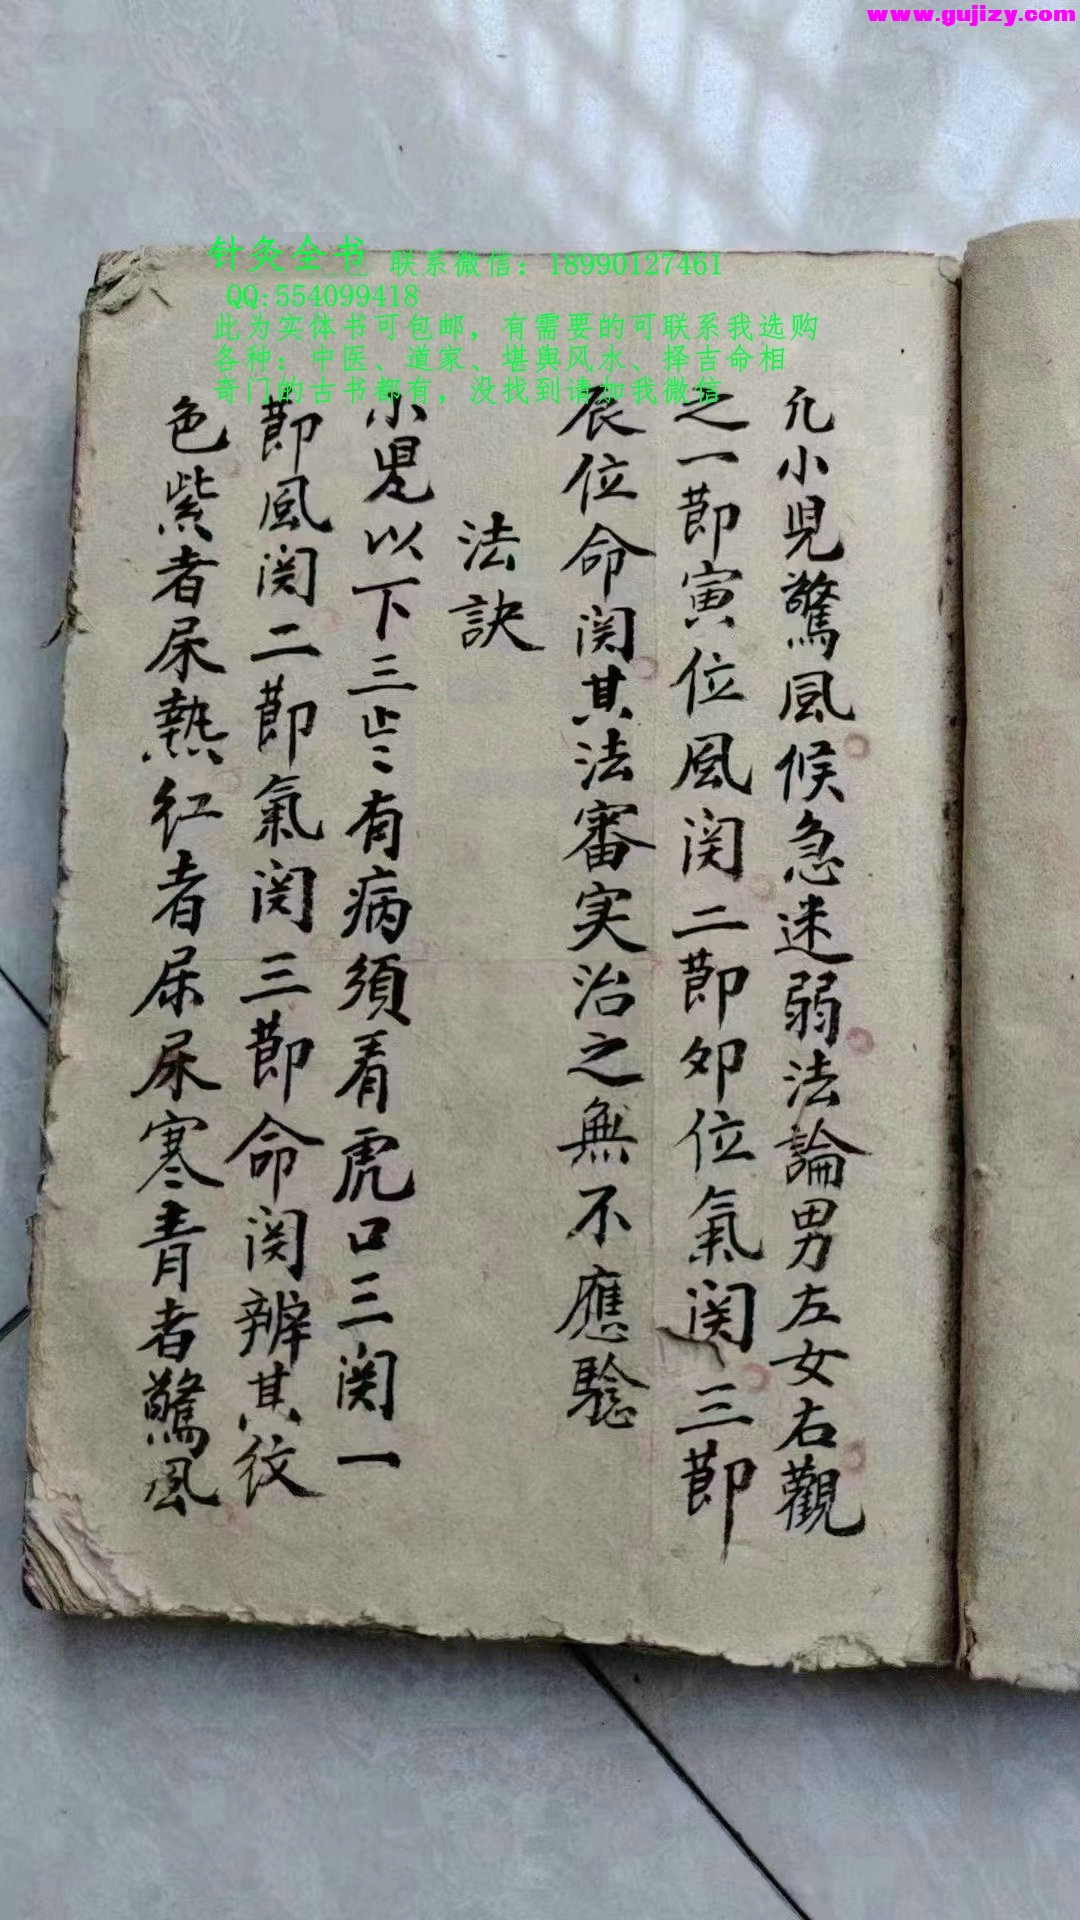 www.gujizy.com
针灸全书 联系微信：18990127461
QQ:554099418
此为实体书可包邮，有需要的可联系我选购
各种：中医、道家、堪舆风水、择吉命相
奇门的古书都有，没找到请加我微信
凢小児驚風候急迷弱法論男左女右觀
之一節寅位風関二節卯位氣関三節
辰位命関其法審実治之無不應騐
法訣
小児以下三歩有病須看虎口三関一
節風関二節氣関三節命関辨其紋
色紫者尿熱紅者尿尿寒青者驚風